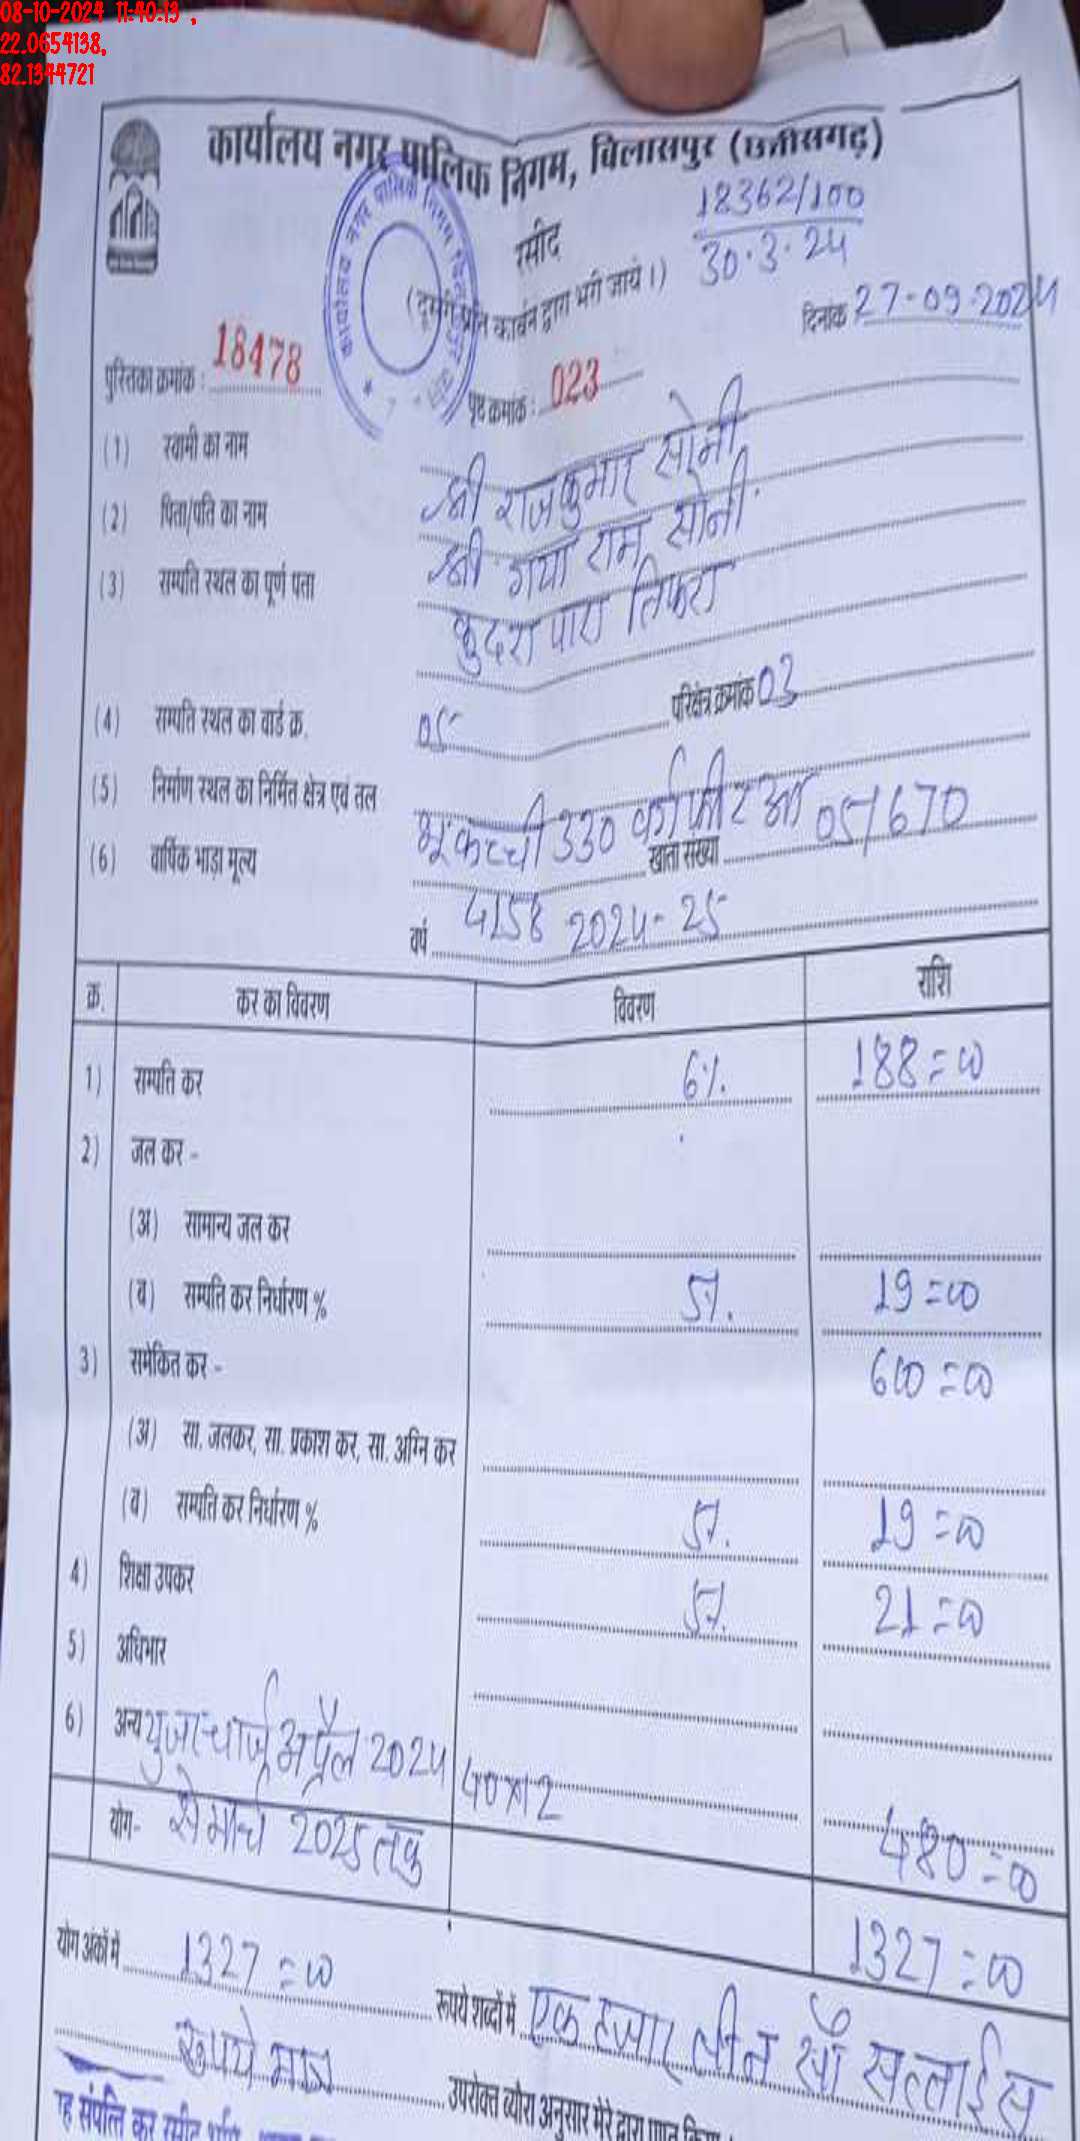 08-10-2024 11:40:13 ,
22.0654138,
82.1344721
कार्यालय नगर पालिक निगम, बिलासपुर (छत्तीसगढ़)
18362/100
30.3.24
रसीद
(दूसरी प्रति कार्बन द्वारा भरी जाये।)
दिनांक 27-09-2024
पुस्तिका क्रमांक : 18478
पृष्ठ क्रमांक : 023
(1) स्वामी का नाम श्री राजकुमार सोनी
(2) पिता/पति का नाम श्री गया राम सोनी
(3) सम्पति स्थल का पूर्ण पता कुदरा पारा तिफरा
(4) सम्पति स्थल का वार्ड क्र. 05 परिक्षेत्र क्रमांक 03
(5) निर्माण स्थल का निर्मित क्षेत्र एवं तल भू. कच्ची 330 वर्गफीट आ
(6) वार्षिक भाड़ा मूल्य 4158 खाता संख्या 05/670
वर्ष 2024-25
क्र. कर का विवरण विवरण राशि
1) सम्पति कर 6% 188=00
2) जल कर -
(अ) सामान्य जल कर
(ब) सम्पति कर निर्धारण % 5%. 19=00
3) समेकित कर - 600=00
(अ) सा. जलकर, सा. प्रकाश कर, सा. अग्नि कर
(ब) सम्पति कर निर्धारण % 5%. 19=00
4) शिक्षा उपकर 5%. 21=00
5) अधिभार
6) अन्य युजर चार्ज अप्रैल 2024 40x12 480=00
से मार्च 2025 तक
योग- 1327=00
योग अंकों में 1327=00 रूपये शब्दों में एक हजार तीन सौ सत्ताईस
रूपये मात्र उपरोक्त ब्योरा अनुसार मेरे द्वारा प्राप्त किया